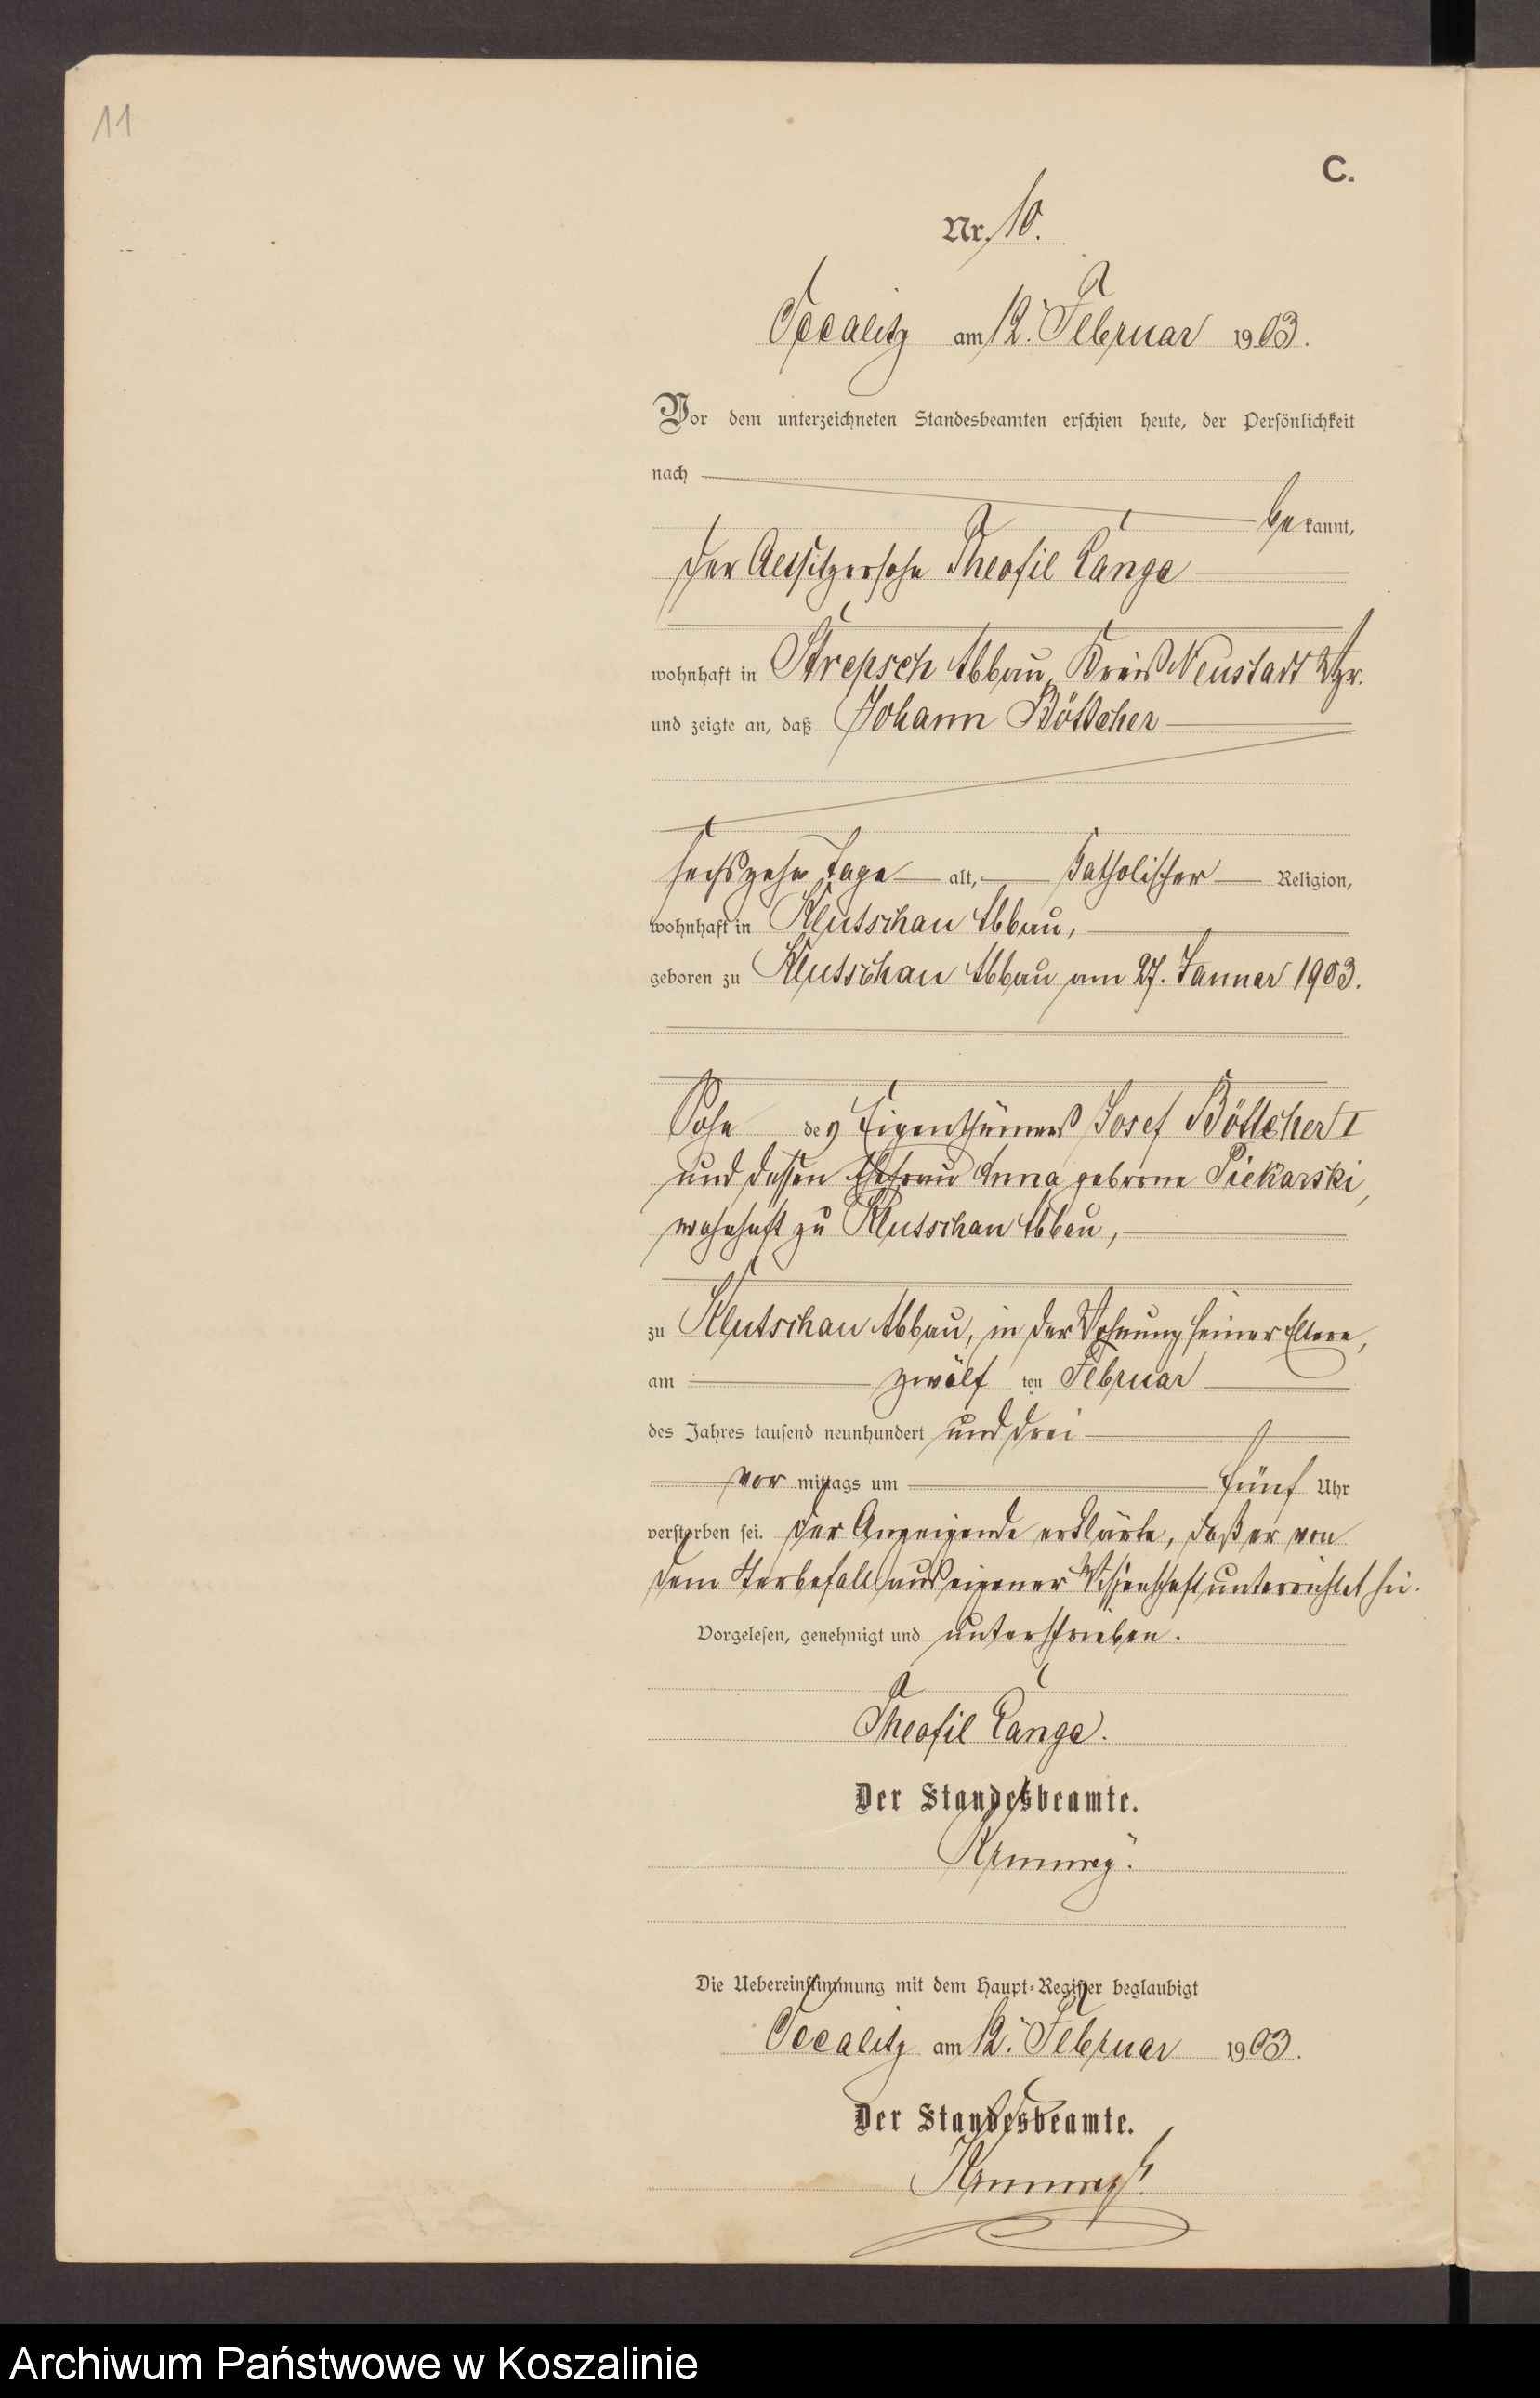 11
C.
Nr. 10.
Occalitz am 12. Februar 1903.
Vor dem unterzeichneten Standesbeamten erschien heute, der Persönlichkeit
nach
bekannt,
der Altsitzersohn Theofil Lange
wohnhaft in Strepsch Abbau, Kreis Neustadt Wpr.
und zeigte an, daß Johann Böttcher
sechszehn Tage alt, katholischer Religion,
wohnhaft in Klutschau Abbau,
geboren zu Klutschau Abbau am 27. Januar 1903.
Sohn des Eigenthümers Josef Böttcher I
und dessen Ehefrau Anna geborne Piekarski,
wohnhaft zu Klutschau Abbau,
zu Klutschau Abbau, in der Wohnung seiner Eltern,
am zwölf ten Februar
des Jahres tausend neunhundert und drei
vor mittags um fünf Uhr
verstorben sei. Der Anzeigende erklärte, daß er von
dem Sterbefall aus eigener Wissenschaft unterrichtet sei.
Vorgelesen, genehmigt und unterschrieben.
Theofil Lange.
Der Standesbeamte.
Die Uebereinstimmung mit dem Haupt-Register beglaubigt
Occalitz am 12. Februar 1903.
Der Standesbeamte.
Archiwum Państwowe w Koszalinie